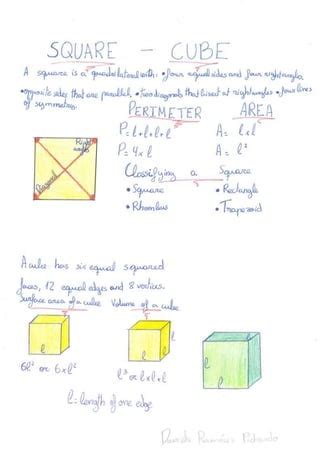 SQUARE - CUBE
A square is a quadrilateral with: • four equal sides and four right angles
• opposite sides that are parallel • two diagonals that bisect at right angles • four lines
of symmetries.
PERIMETER AREA
P = l+l+l+l A = l x l
P = 4 x l A = l²
Right angles
Diagonal
Classifying a Square
• Square • Rectangle
• Rhombus • Trapezoid
A cube has six equal squared
faces, 12 equal edges and 8 vertices.
Surface area of a cube Volume of a cube
l l l
l l
6l² or 6 x l²
l³ or l x l x l
l = length of one edge